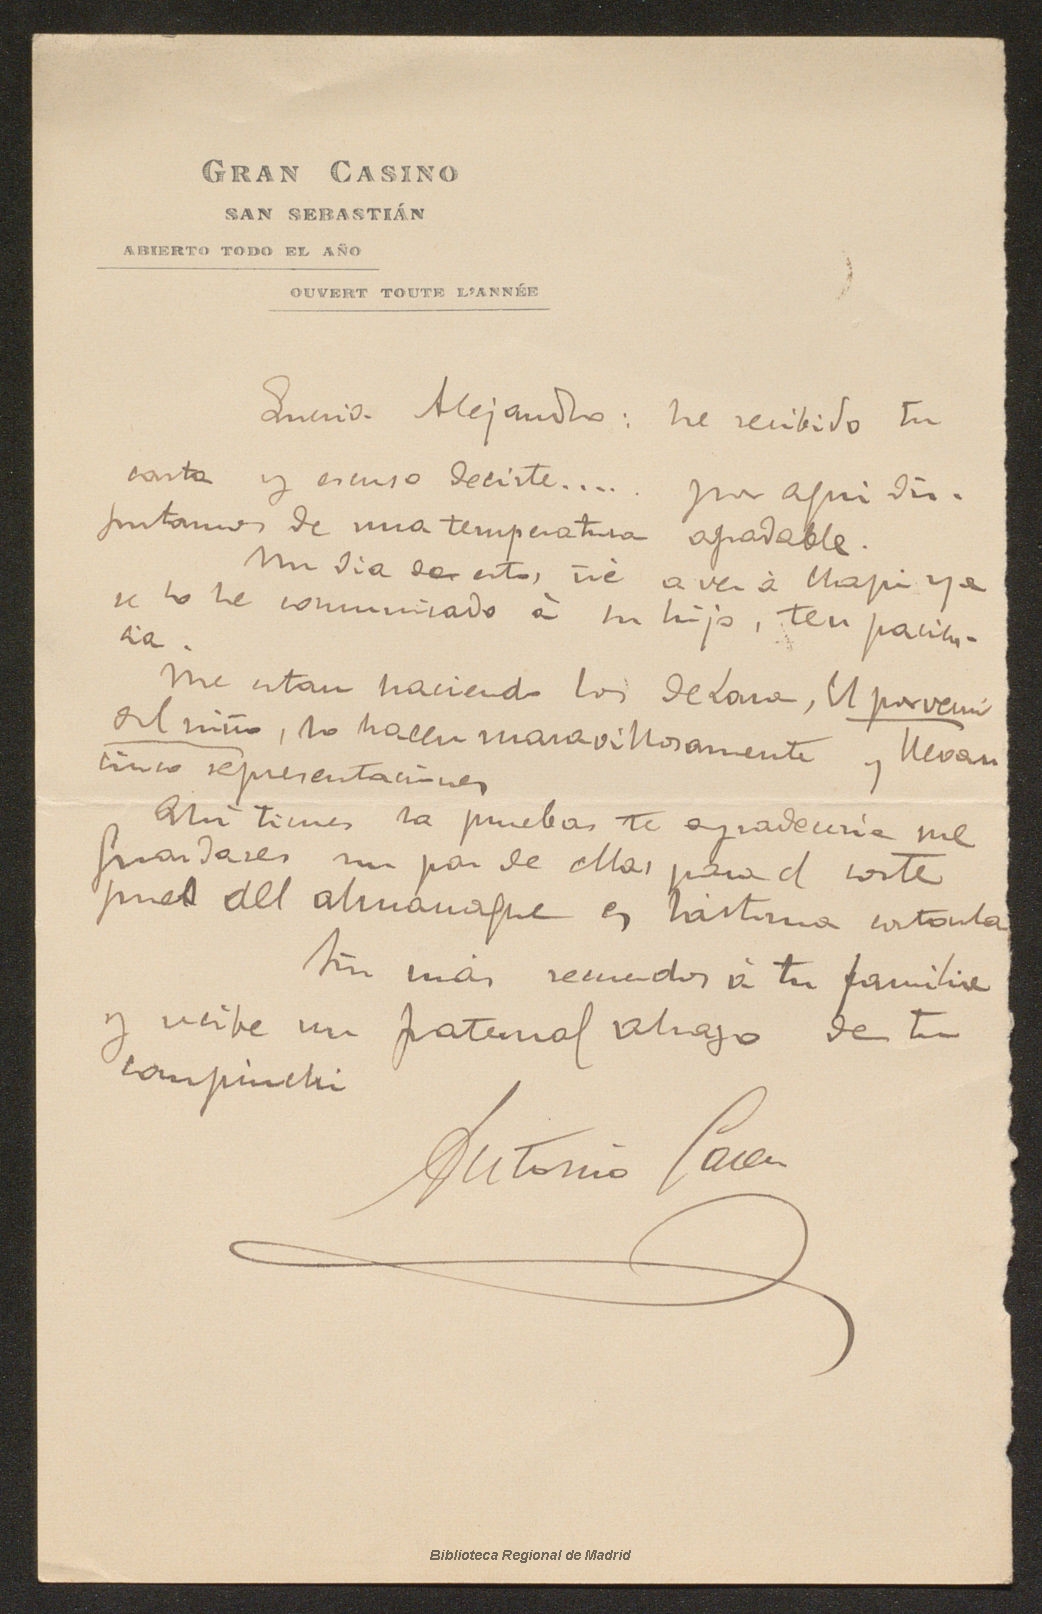 GRAN CASINO
SAN SEBASTIÁN
ABIERTO TODO EL AÑO
OUVERT TOUTE L'ANNÉE
Querido Alejandro: he recibido tu
carta y escuso decirte..... por aqui dis-
frutamos de una temperatura agradable.
Un dia de estos iré a ver á Chapi ya
se lo he comunicado á su hijo, ten pacien-
cia.
Me estan haciendo los de Lara, El porvenir
del niño, lo hacen maravillosamente y llevan
cinco representaciones
Ahi tienes la pruebas te agradeceria me
guardases un par de ellas para el corte
pues del almanaque es lástima cortarla
Sin más recuerdos á tu familia
y recibe un fraternal abrazo de tu
compinchi
Antonio
Biblioteca Regional de Madrid